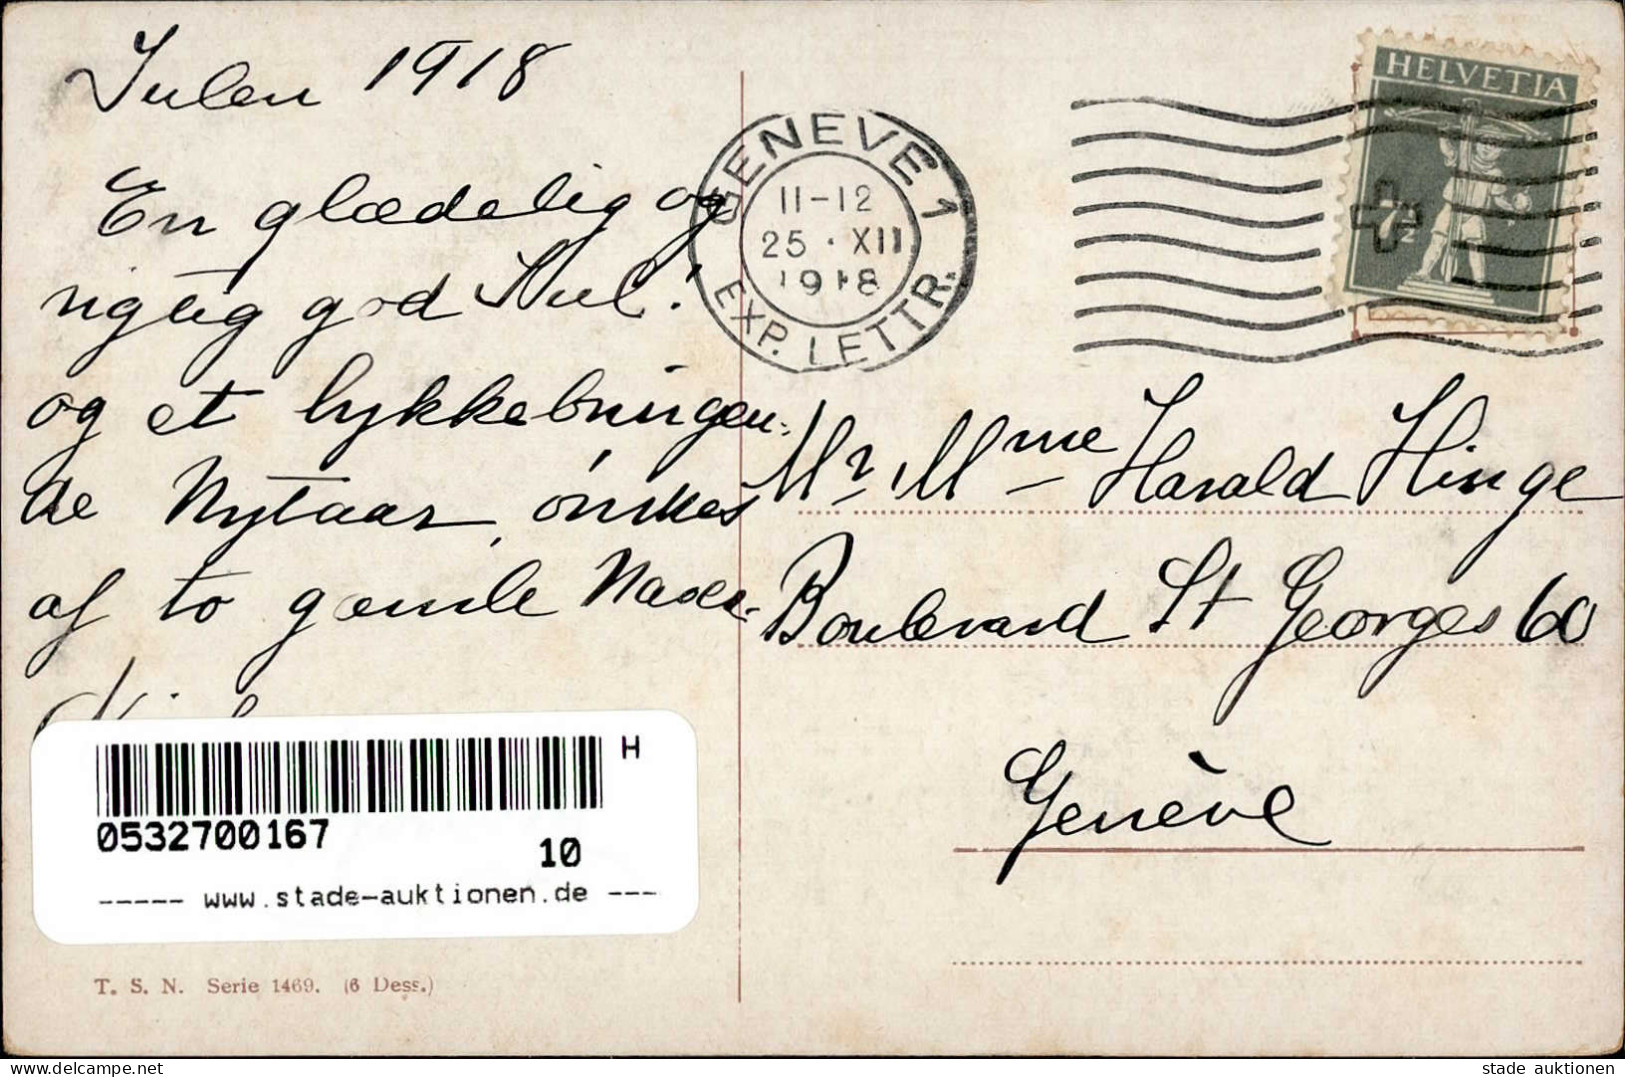 Julen 1918
En glædelig og
rigtig god Jul!
og et lykkebringen-
de Nytaar, ønskes
af to gamle
HELVETIA
7½
GENEVE 1
11-12
25·XII
1918
EXP. LETTR.
Mr. Mme Harald Hinge
Boulevard St Georges 60
Genève
H
0532700167
10
----- www.stade-auktionen.de ---
T. S. N. Serie 1469. (6 Dess.)
delcampe.net
stade auktionen